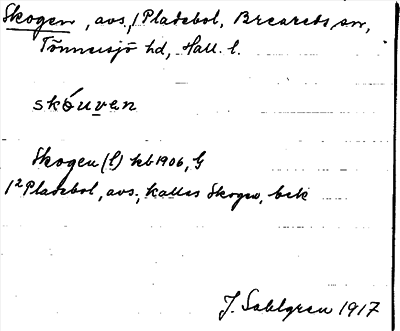 Skogen, avs, / Pladebol, Breareds sn,
Tönnersjö hd, Hall. l.
skóuvan
Skogen (l) kb 1906, G
1/2 Pladebol, avs, kallas Skogen, bek
J. Sahlgren 1917